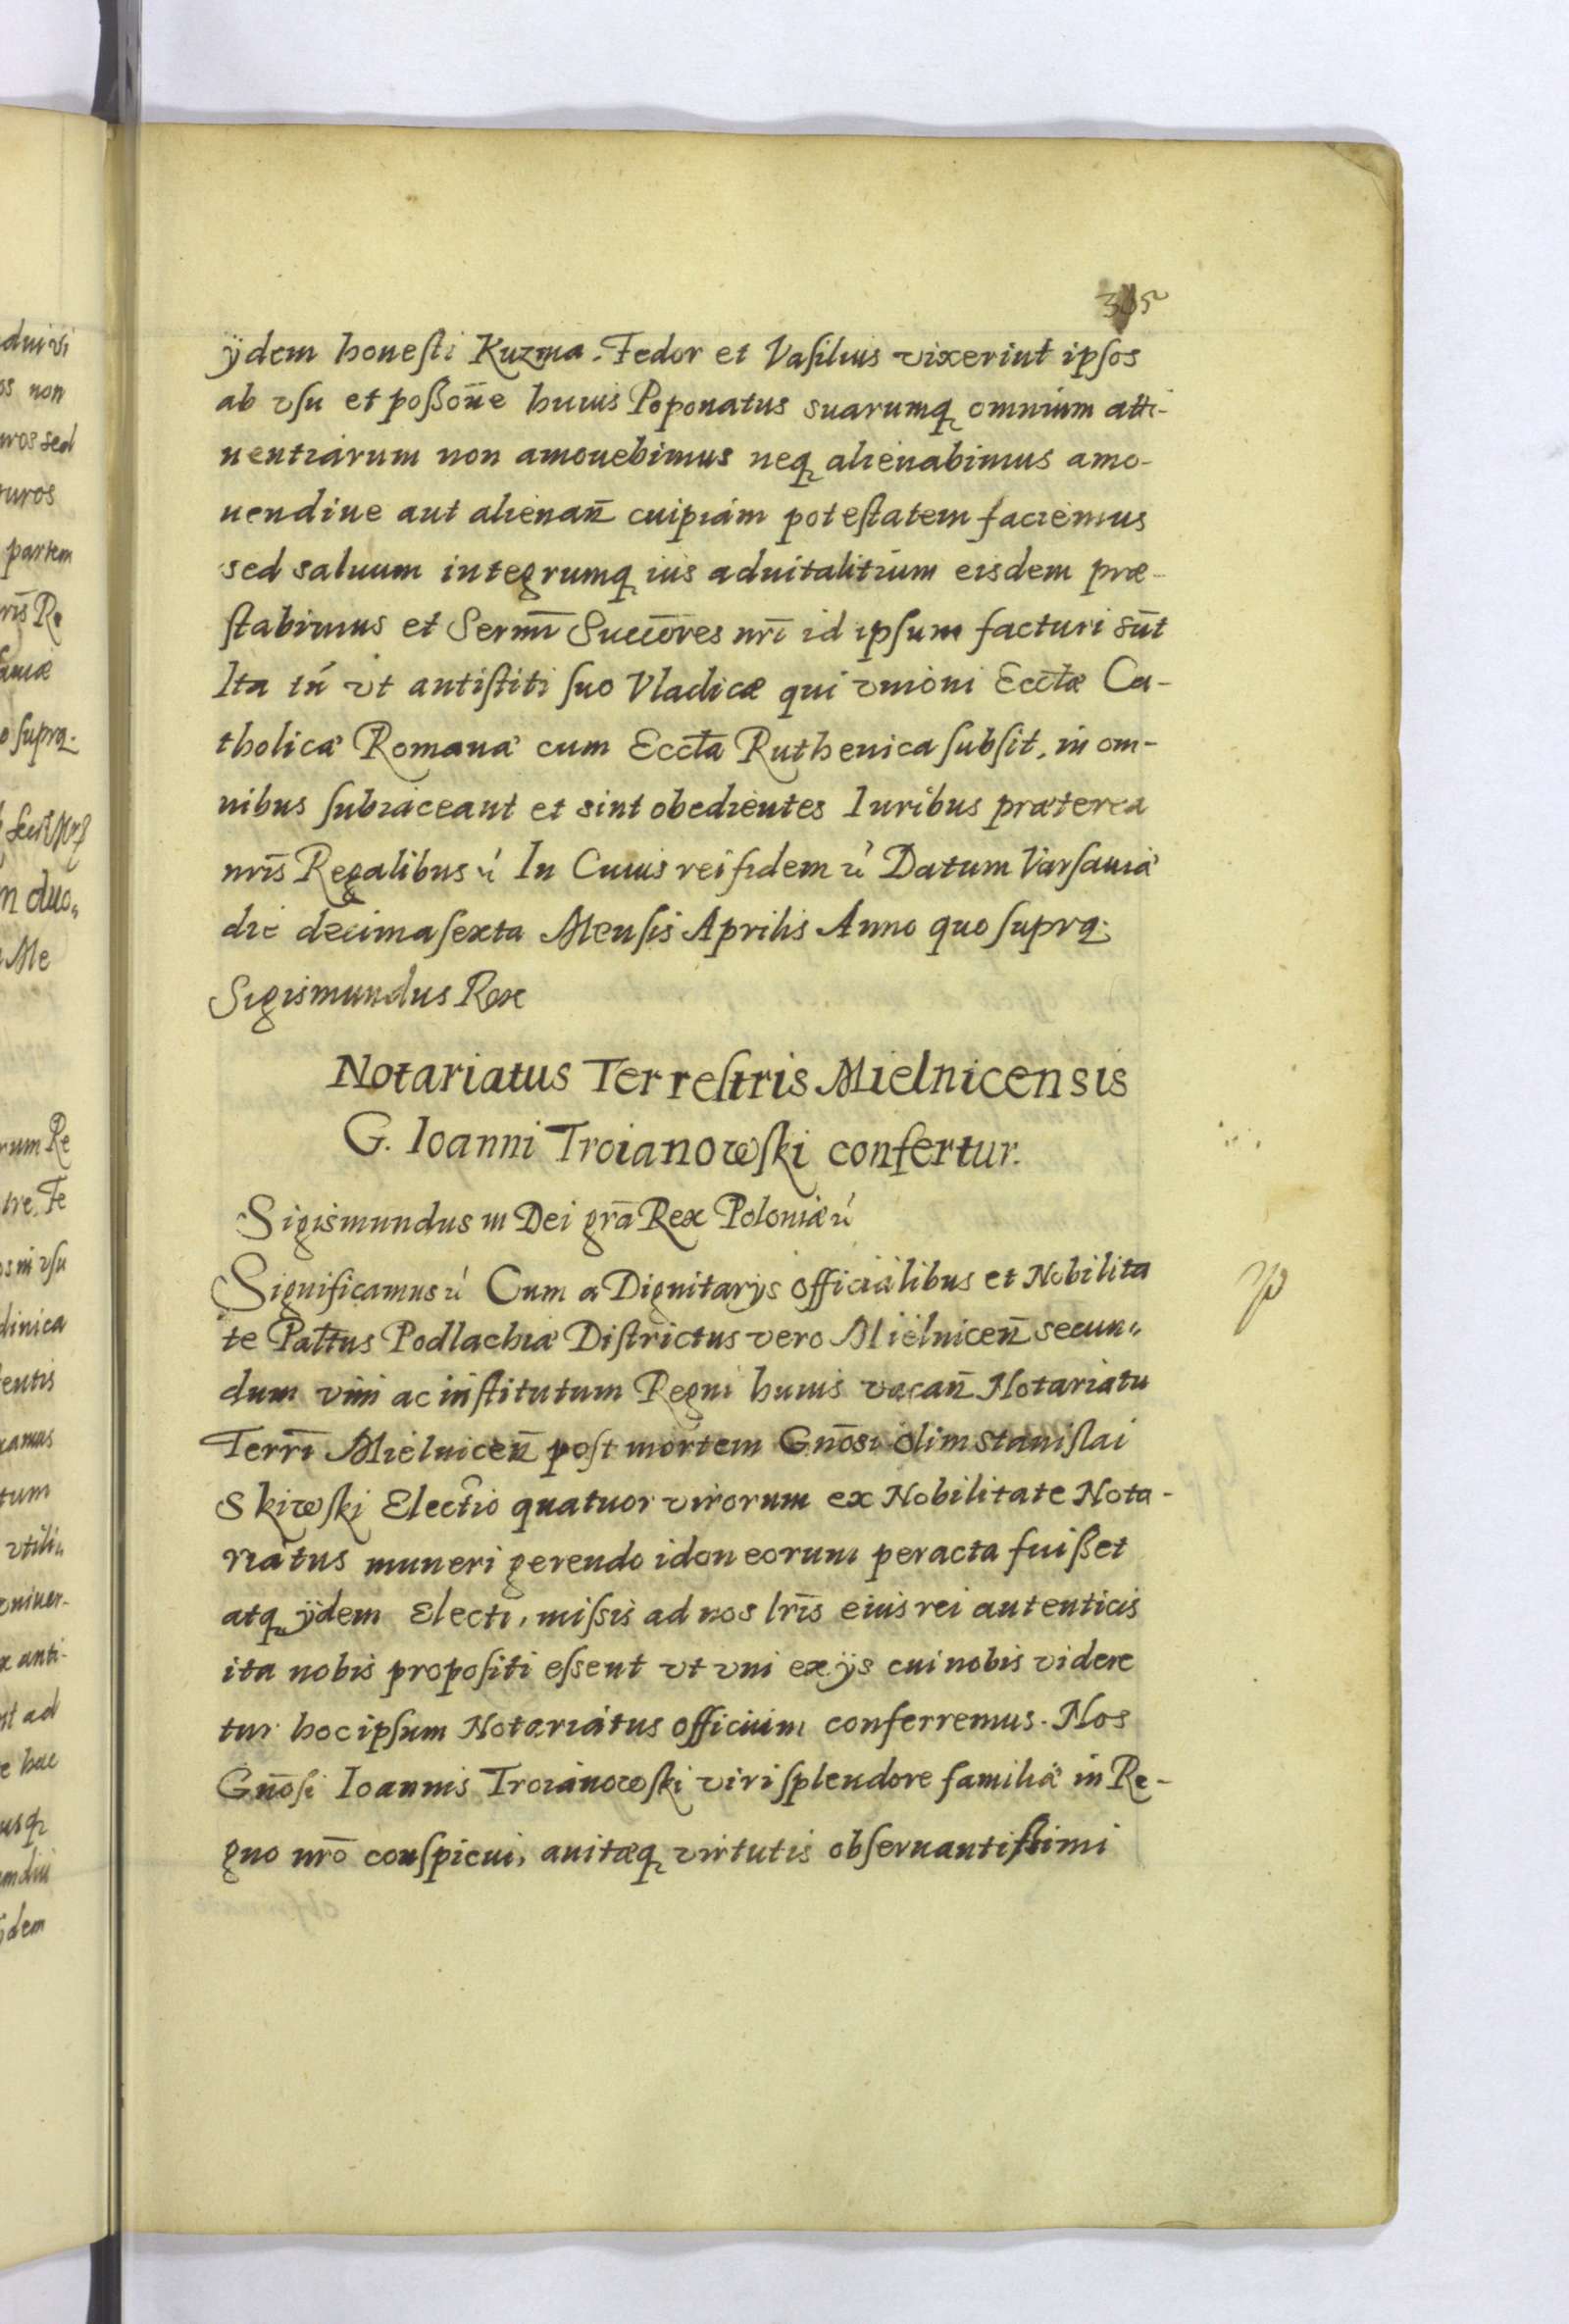 ÿdem honeſti Kuzma. Fedor et Vaſilius vixerint ipſos
ab vſu et poßon̄e huius Poponatus suarumq̨ omnium atti-
nentiarum non amouebimus neq̨ alienabimus amo-
uendiue aut alienan̄ cuipiam poteſtatem faciemus
sed saluum integrumq̨ ius aduitalitium eisdem præ-
ſtabimus et Serm̄i Succōres nr̄i id ipſum facturi sūt
Ita tń vt antiſtiti ſuo Vladicæ qui vnioni Eccl̄æ Ca-
tholicæ Romanæ cum Eccl̄a Ruthenica ſubſit, in om-
nibus ſubiaceant et sint obedientes Iuribus præterea
nr̄is Regalibus ⁊ć In Cuius rei fidem ⁊ć Datum Varſauiæ
die decima ſexta Menſis Aprilis Anno quo ſuprą.
Sigismundus Rex
Notariatus Terreſtris Mielnicensis
G. Ioanni Troianowſki confertur.
Sigismundus III Dei gr̄a Rex Poloniæ ⁊ć
Significamus ⁊ć Cum a Dignitarÿs officialibus et Nobilita
te Pal̄tus Podlachiæ Diſtrictus vero Mielnicen̄ secun„
dum vim ac inſtitutum Regni huius vacan̄ Notariatu
Terr̄i Mielnicen̄ poſt mortem Gn̄osi olim Staniſlai
Skiwſki Electio quatuor virorum ex Nobilitate Nota-
riatus muneri gerendo idoneorum peracta fuißet
atq̨ ÿdem Electi, miſsis ad nos lr̄is eius rei autenticis
ita nobis propoſiti eſsent vt vni ex ÿs cui nobis videre
tur hoc ipſum Notariatus officium conferremus. Nos
Gn̄oſi Ioannis Troianowſki viri ſplendore familiæ in Re-
gno nr̄o conſpicui, auitæq̨ virtutis obſeruantiſsimi